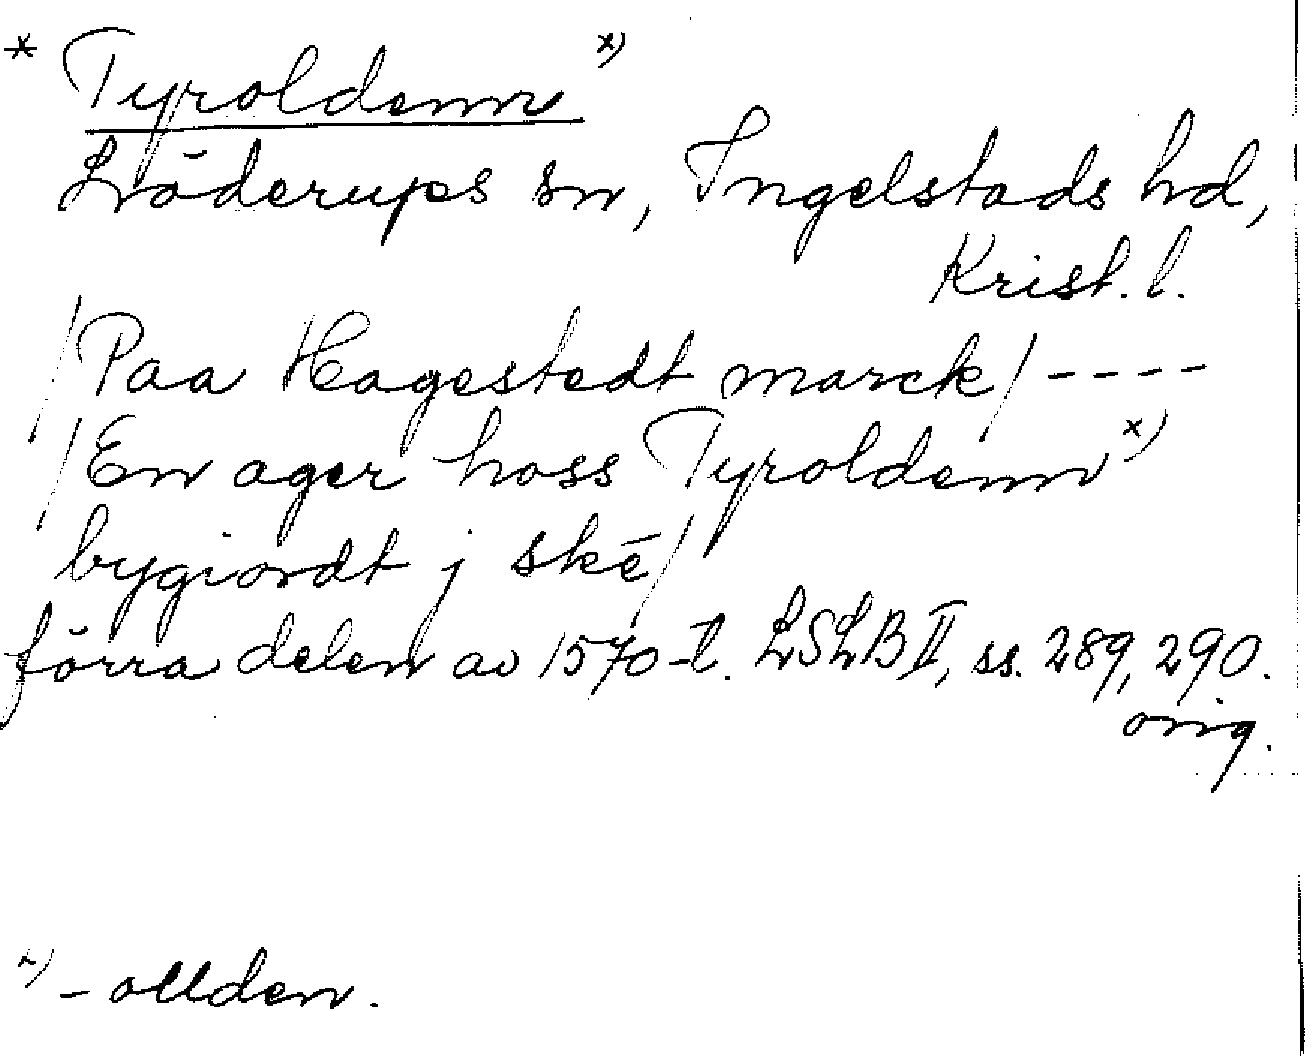 * Tyroldenn x)
Löderups sn, Ingelstads hd,
Krist. l.
/Paa Hagestedt marck/ ----
/En ager hoss Tyroldenn x)
bygiordt j skē/
förra delen av 1570-t. LSLB II, ss. 289, 290.
orig.
x) - ollden.